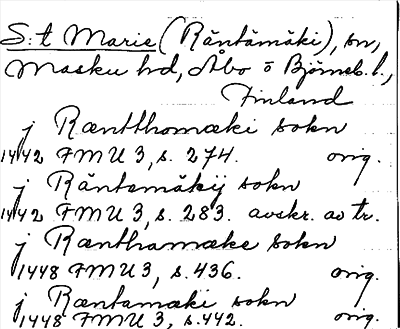 S:t Marie (Räntämäki), sn,
Masku hd, Åbo o Björneb. l.,
Finland
j Ræntthomæki sokn
1442 FMU 3, s. 274. orig.
j Räntamäkij sokn
1442 FMU 3, s. 283. avskr. av tr.
j Rænthamæke sokn
1448 FMU 3, s. 436. orig.
j Ræntamæki sokn
1448 FMU 3, s. 442. orig.